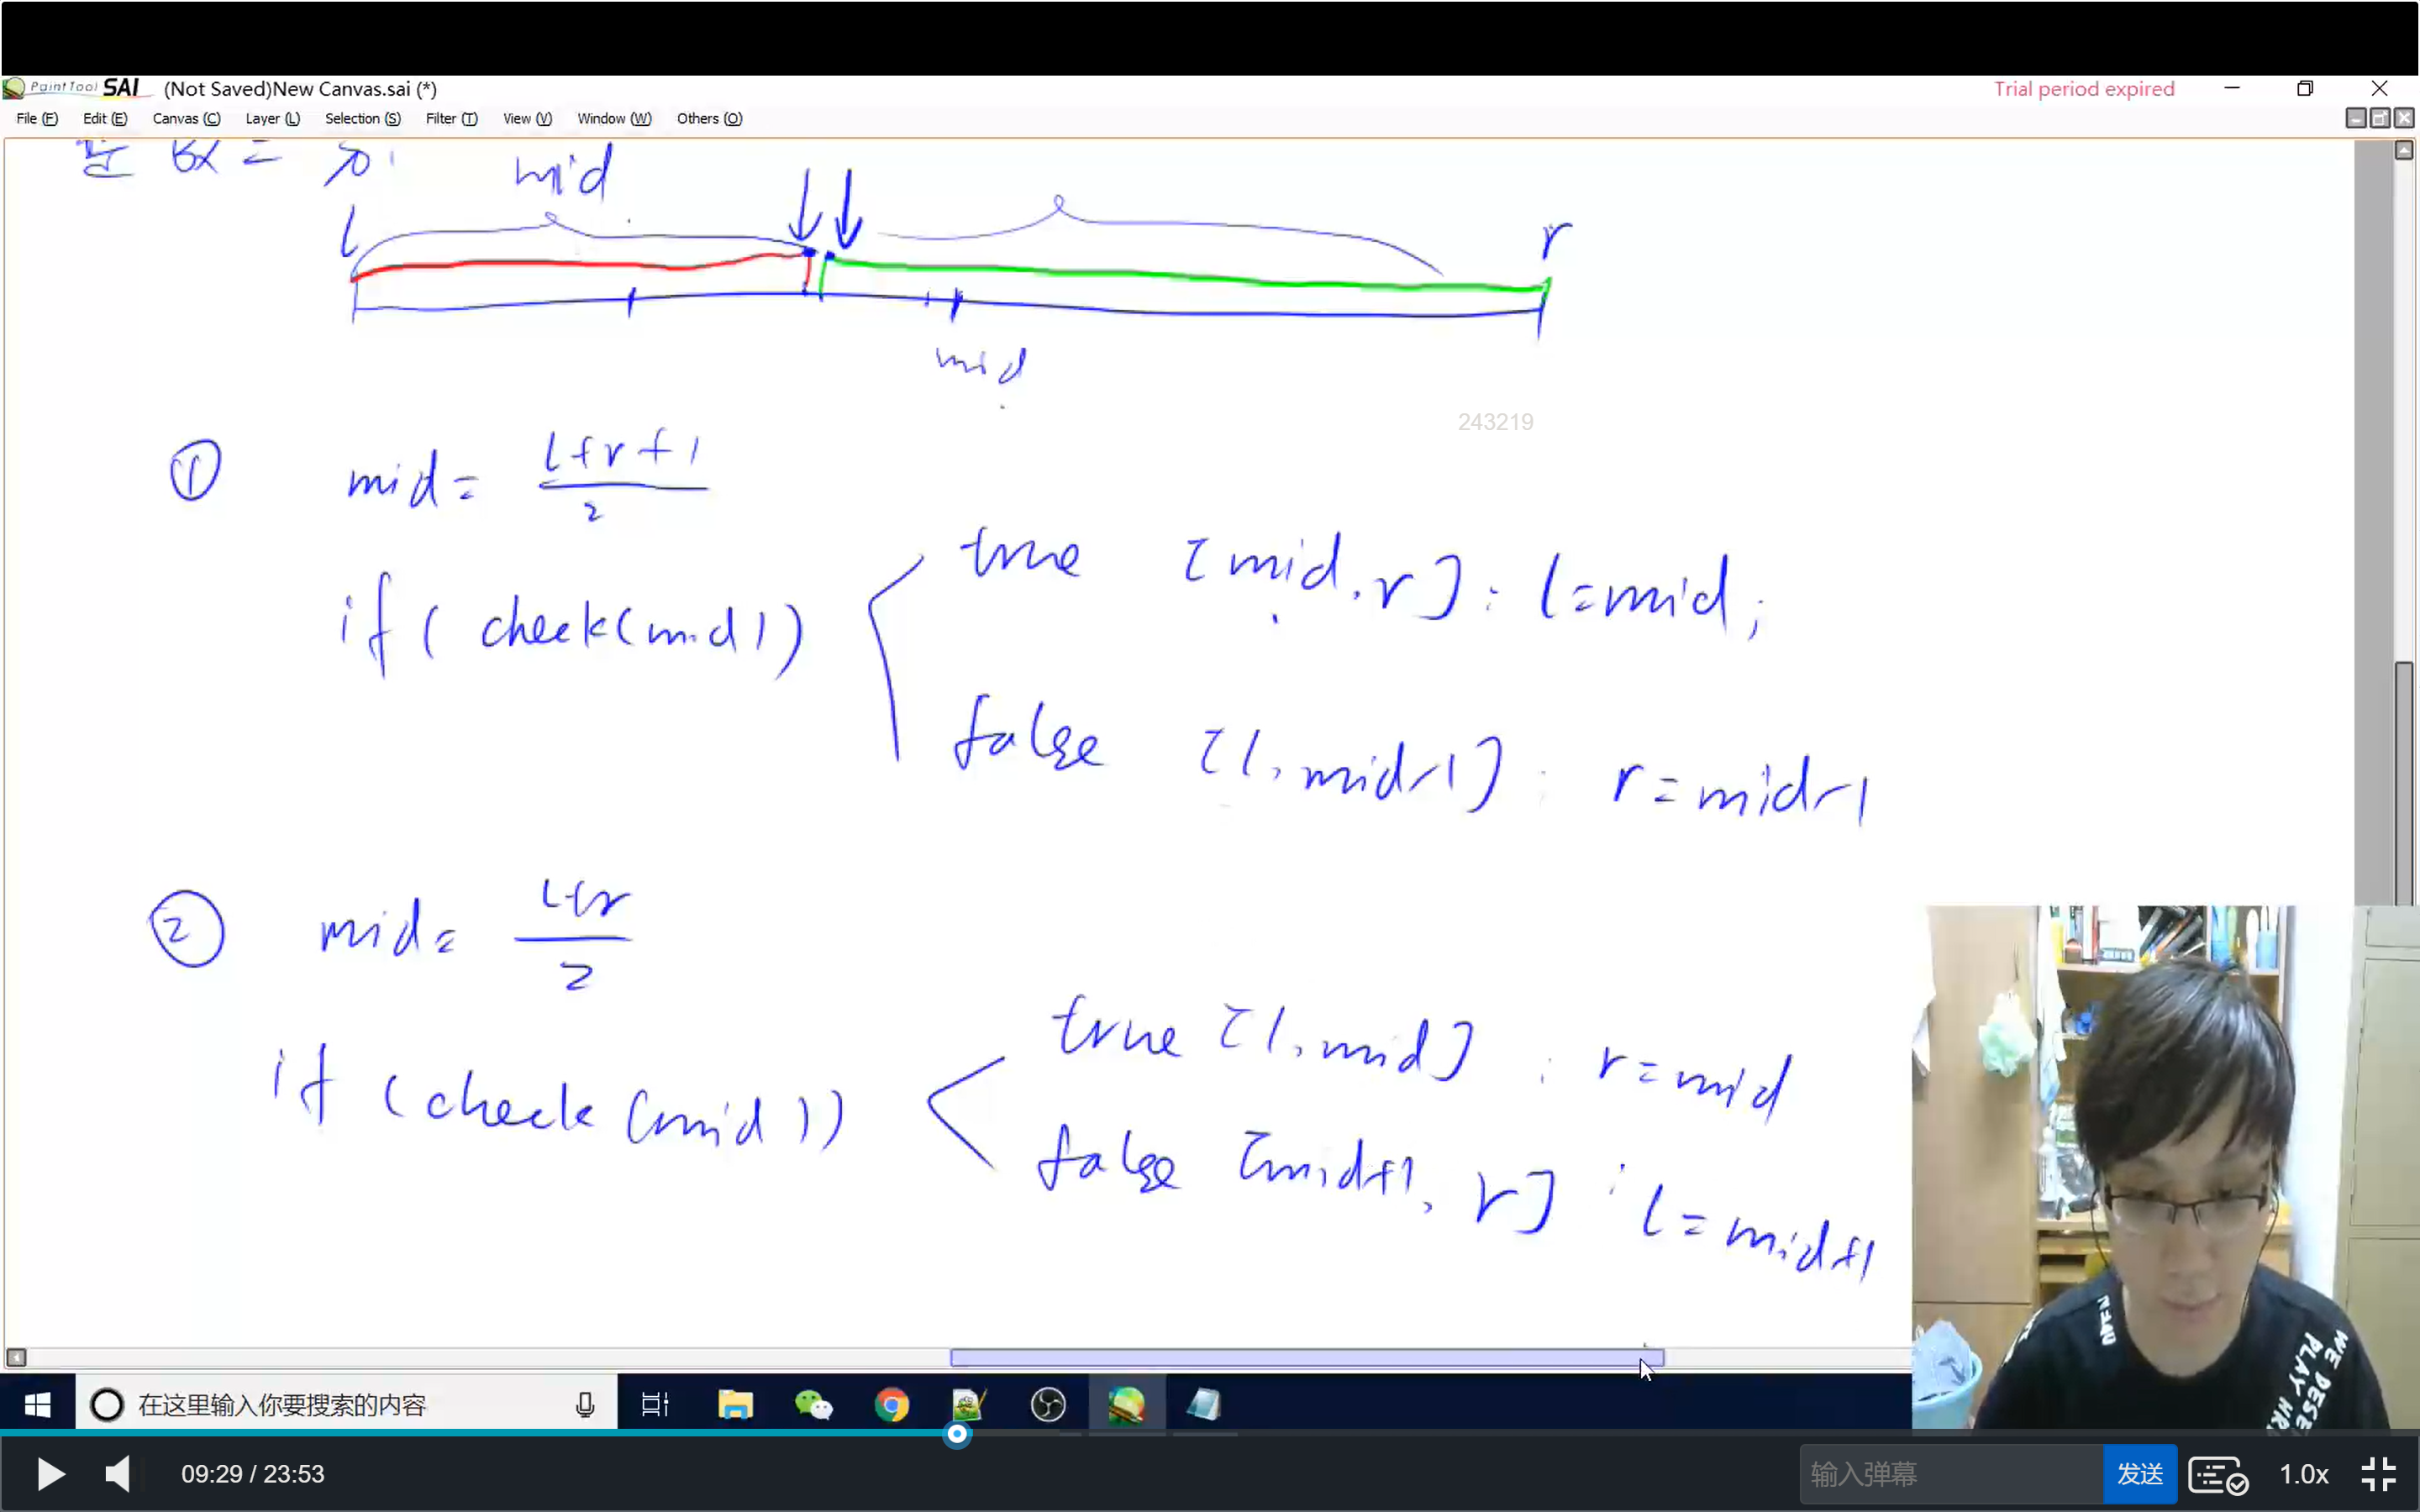 PaintTool SAI (Not Saved)New Canvas.sai (*) Trial period expired
File (F) Edit (E) Canvas (C) Layer (L) Selection (S) Filter (T) View (V) Window (W) Others (O)
mid
l r
mid
243219
① mid = l+r+1
2
if ( check(mid)) true [mid, r] : l=mid;
false [l, mid-1] : r=mid-1
② mid = l+r
2
if (check (mid)) true [l, mid] : r=mid
false [mid+1, r] : l=mid+1
OFFN
WE DESE
PLAY HR
在这里输入你要搜索的内容
09:29 / 23:53 输入弹幕 发送 1.0x